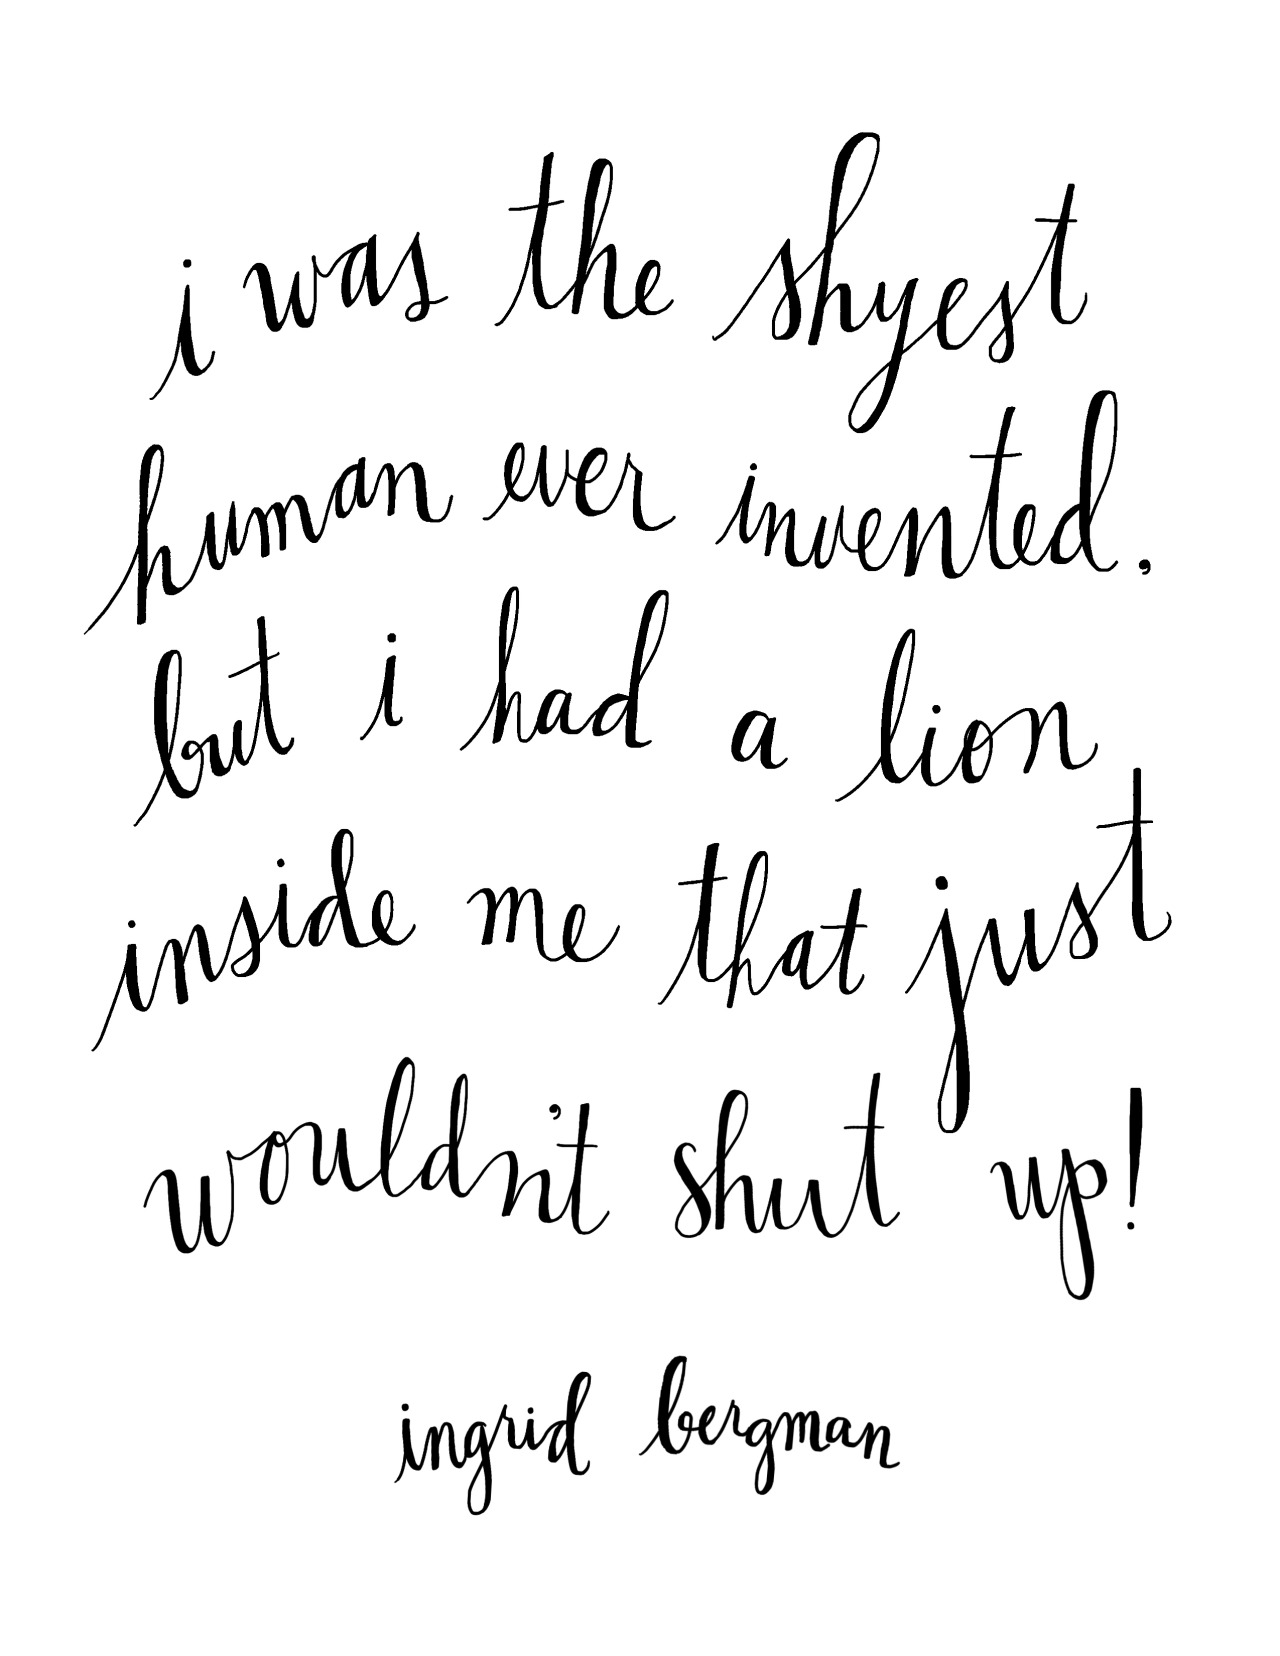 i was the shyest
human ever invented,
but i had a lion
inside me that just
wouldn't shut up!
ingrid bergman